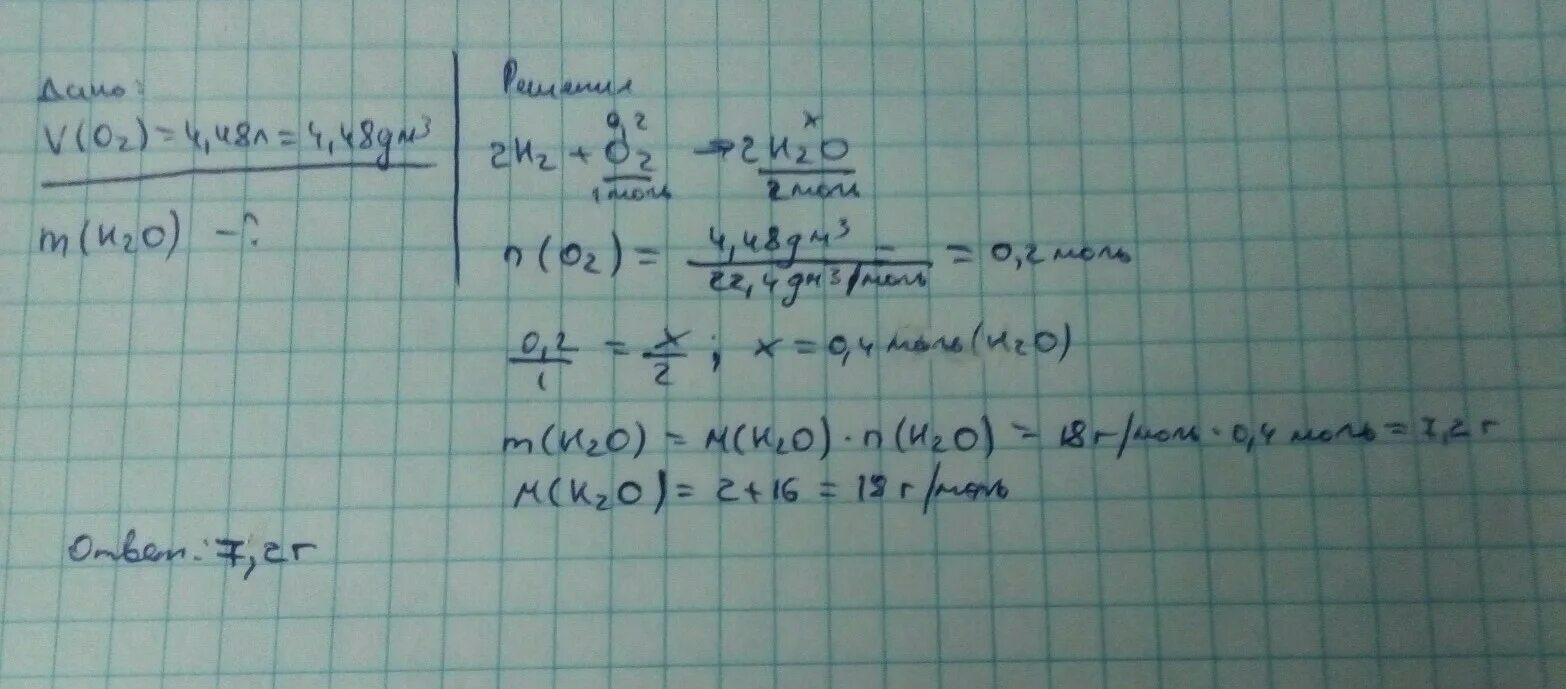 Дано:
V(O₂) = 4,48л = 4,48дм³
m(H₂O) - ?
Решения
0,2 x
2H₂ + O₂ → 2H₂O
1 моль 2 моль
n(O₂) = 4,48дм³ / 22,4дм³/моль = 0,2 моль
0,2/1 = x/2 ; x = 0,4 моль (H₂O)
m(H₂O) = M(H₂O) · n(H₂O) = 18 г/моль · 0,4 моль = 7,2 г
M(H₂O) = 2+16 = 18 г/моль
Ответ: 7,2г